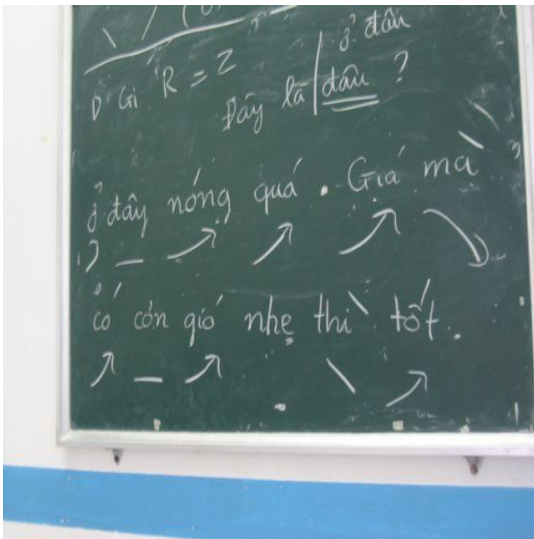 D Gi R = Z
ở đâu
Đây là đâu ?
ở đây nóng quá . Giá mà
có cơn gió nhẹ thì tốt .